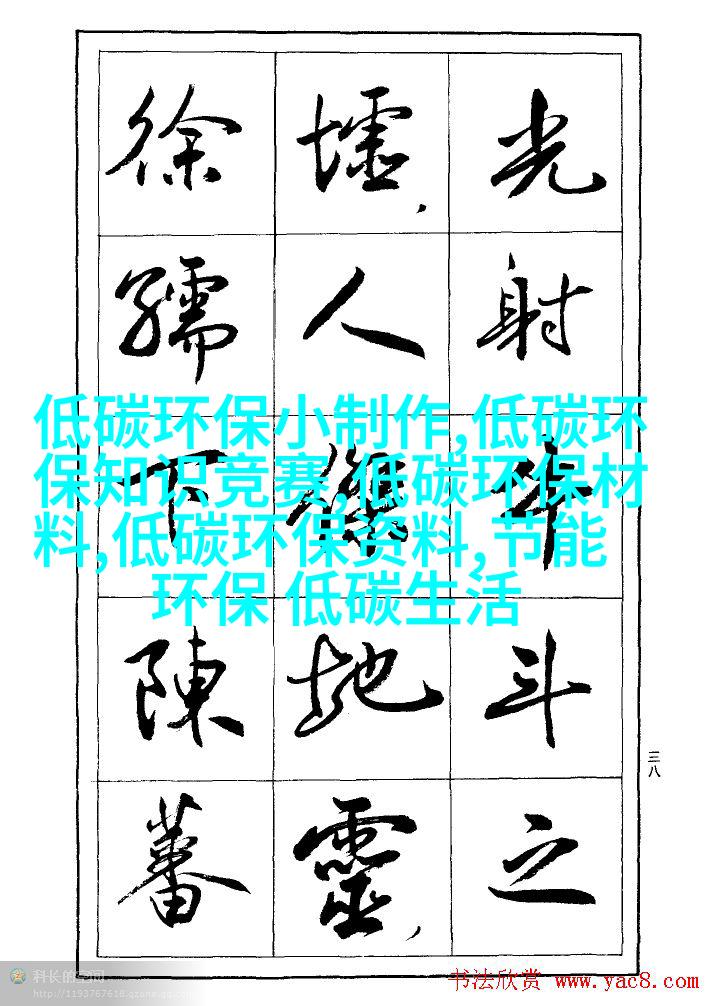 光射牛斗之
墟,人傑地靈,
徐孺下陳蕃
低碳环保小制作,低碳环
保知识竞赛,低碳环保材
料,低碳环保资料,节能
环保 低碳生活
三八
科长的空间
书法欣赏 www.yac8.com